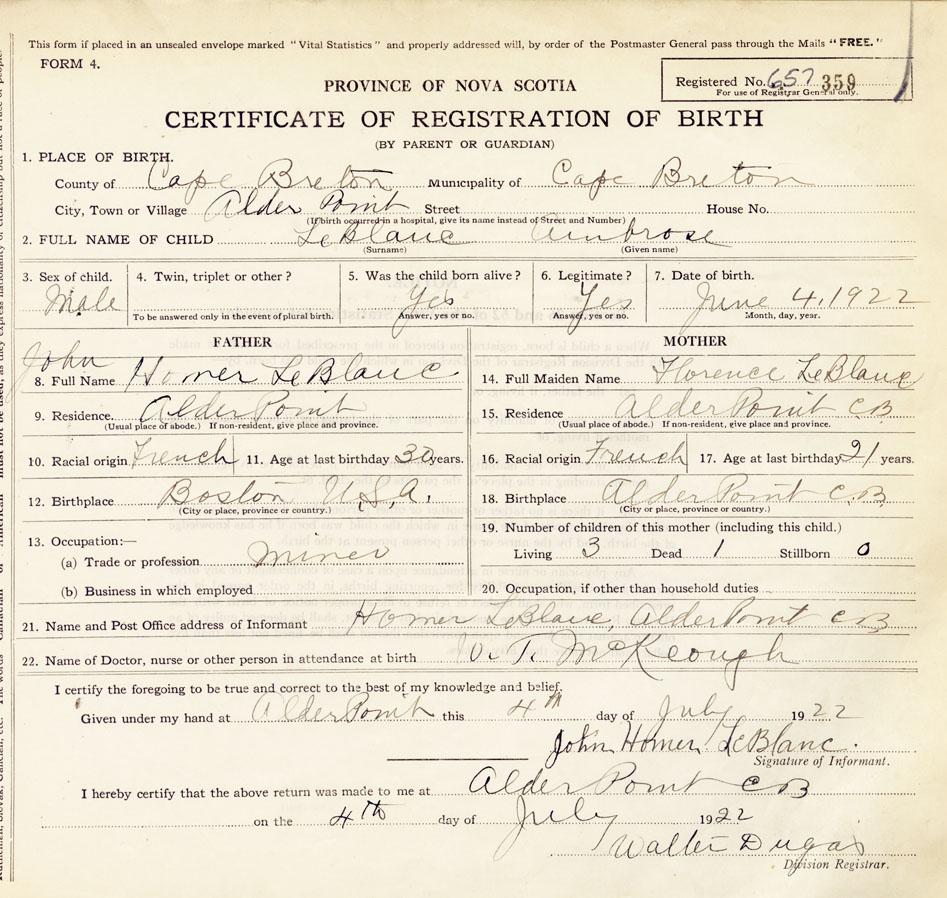 This form if placed in an unsealed envelope marked "Vital Statistics" and properly addressed will, by order of the Postmaster General pass through the Mails "FREE."
FORM 4.
Registered No. 657 359
For use of Registrar General only.
PROVINCE OF NOVA SCOTIA
CERTIFICATE OF REGISTRATION OF BIRTH
(BY PARENT OR GUARDIAN)
1. PLACE OF BIRTH.
County of Cape Breton Municipality of Cape Breton
City, Town or Village Alder Point Street House No.
(If birth occurred in a hospital, give its name instead of Street and Number)
2. FULL NAME OF CHILD LeBlanc Ambrose
(Surname) (Given name)
3. Sex of child. 4. Twin, triplet or other? 5. Was the child born alive? 6. Legitimate? 7. Date of birth.
Male Yes Yes June 4, 1922
To be answered only in the event of plural birth. Answer, yes or no. Answer, yes or no. Month, day, year.
FATHER
John
8. Full Name Homer LeBlanc
9. Residence. Alder Point
(Usual place of abode.) If non-resident, give place and province.
10. Racial origin French 11. Age at last birthday 30 years.
12. Birthplace Boston U.S.A.
(City or place, province or country.)
13. Occupation:—
(a) Trade or profession miner
(b) Business in which employed
MOTHER
14. Full Maiden Name Florence LeBlanc
15. Residence Alder Point CB
(Usual place of abode.) If non-resident, give place and province.
16. Racial origin French 17. Age at last birthday 21 years.
18. Birthplace Alder Point C.B
(City or place, province or country.)
19. Number of children of this mother (including this child.)
Living 3 Dead 1 Stillborn 0
20. Occupation, if other than household duties
21. Name and Post Office address of Informant Homer LeBlanc, Alder Point CB
22. Name of Doctor, nurse or other person in attendance at birth T. McKeough
I certify the foregoing to be true and correct to the best of my knowledge and belief.
Given under my hand at Alder Point this 4th day of July 1922
John Homer LeBlanc.
Signature of Informant.
I hereby certify that the above return was made to me at Alder Point CB
on the 4th day of July 1922
Walter Dugas
Division Registrar.